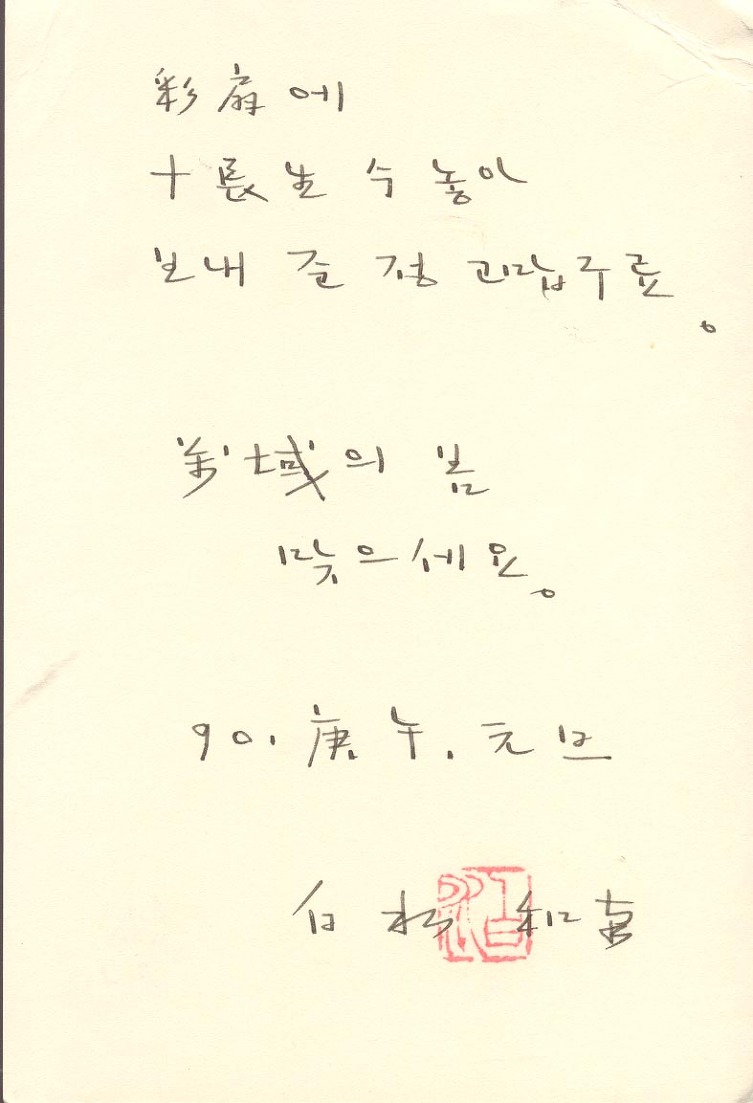 彩扇에
十長生 수 놓아
보내 준 정 고맙구료。
의 봄
맞으세요。
90. 庚午. 元旦
白松